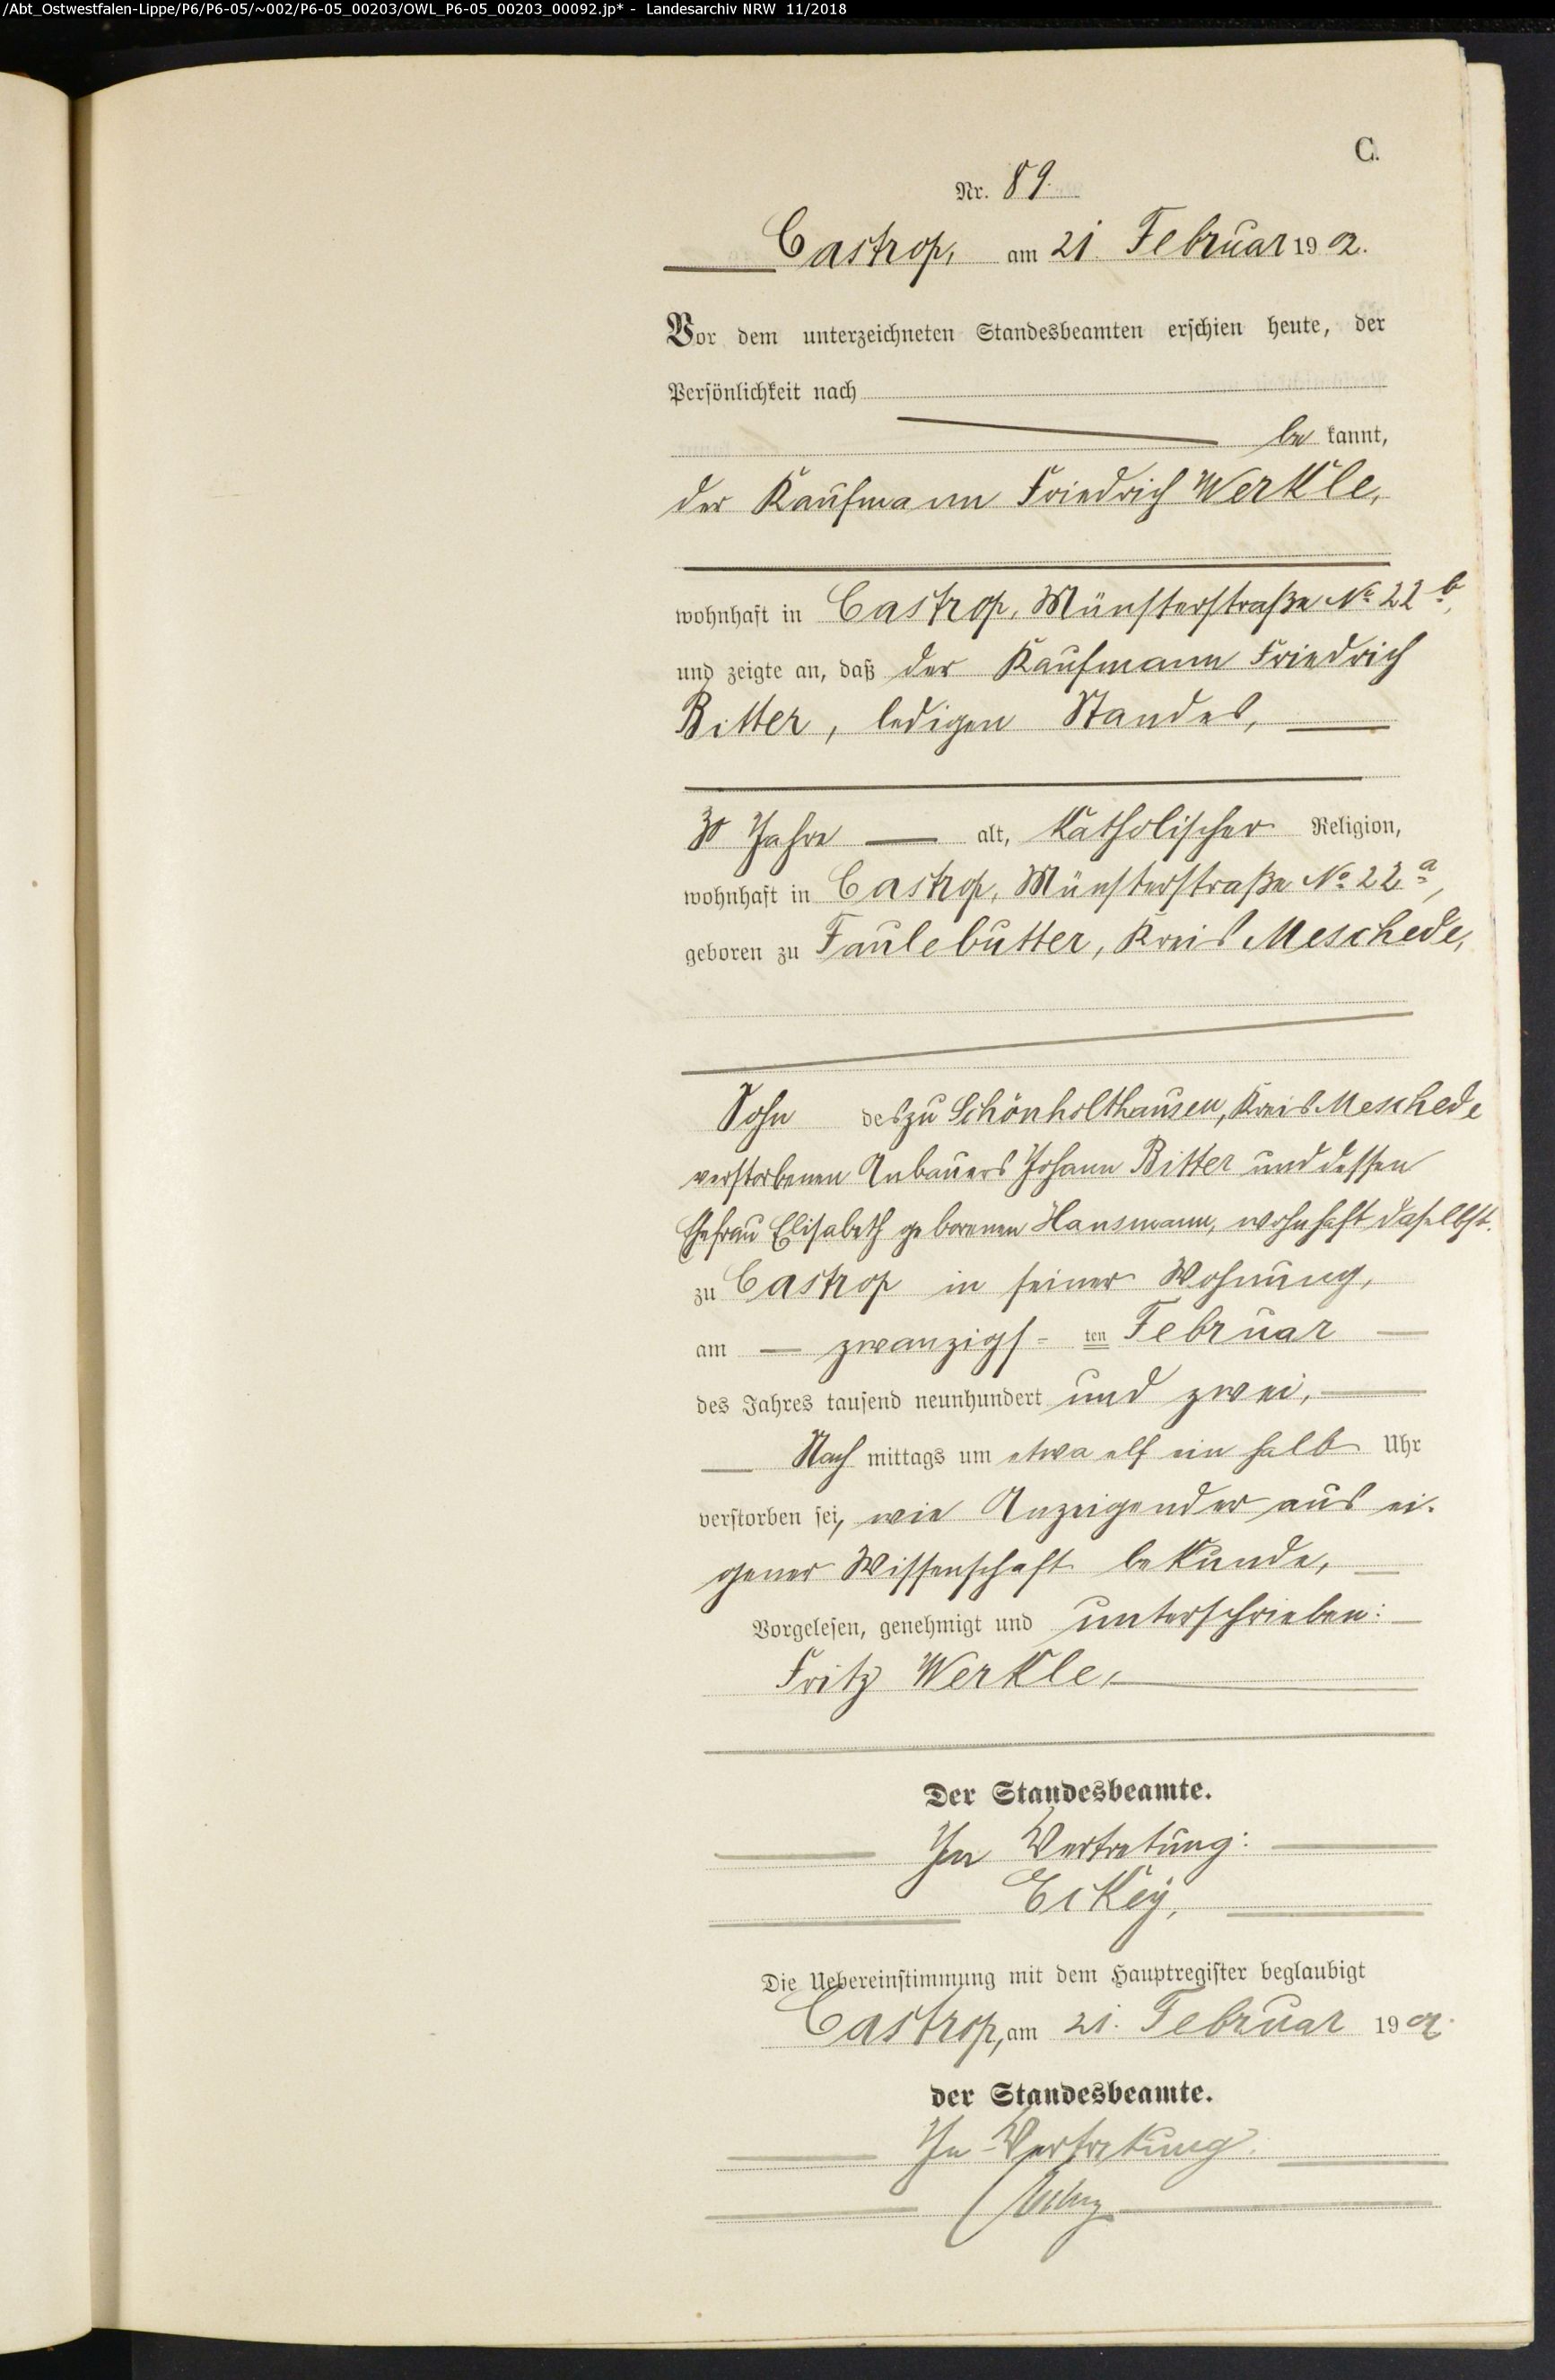 /Abt_Ostwestfalen-Lippe/P6/P6-05/~002/P6-05_00203/OWL_P6-05_00203_00092.jp* - Landesarchiv NRW 11/2018
C.
Nr. 89.
Castrop, am 21. Februar 1902.
Vor dem unterzeichneten Standesbeamten erschien heute, der
Persönlichkeit nach
be kannt,
der Kaufmann Friedrich Werkle,
wohnhaft in Castrop, Münsterstraße No 22 b,
und zeigte an, daß der Kaufmann Friedrich
Bitter, ledigen Standes,
30 Jahre alt, katholischer Religion,
wohnhaft in Castrop, Münsterstraße No 22 a,
geboren zu Faulebutter, Kreis Meschede,
Sohn des zu Schönholthausen, Kreis Meschede
verstorbenen Anbauers Johann Bitter und dessen
Ehefrau Elisabeth geborenen Hansmann, wohnhaft daselbst.
zu Castrop in seiner Wohnung,
am zwanzigs- ten Februar
des Jahres tausend neunhundert und zwei,
Nach mittags um etwa elf ein halb Uhr
verstorben sei, wie Anzeigender aus ei-
gener Wissenschaft bekunde,
Vorgelesen, genehmigt und unterschrieben:
Fritz Werkle,
Der Standesbeamte.
In Vertretung:
Eckey,
Die Uebereinstimmung mit dem Hauptregister beglaubigt
Castrop, am 21. Februar 1902.
der Standesbeamte.
In Vertretung.